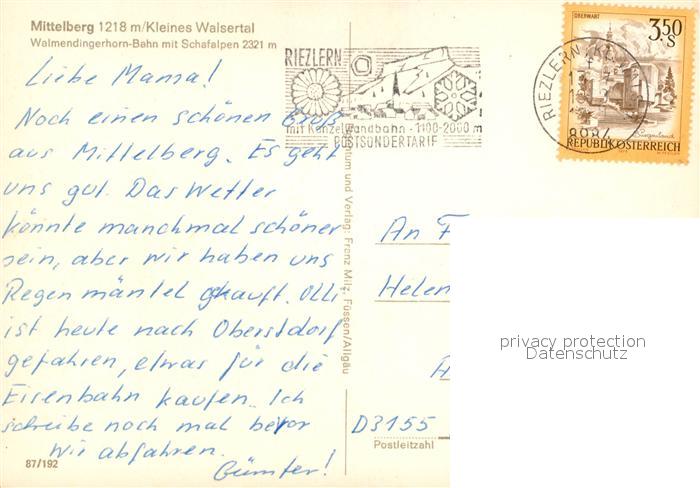 Mittelberg 1218 m/Kleines Walsertal
Walmendingerhorn-Bahn mit Schafalpen 2321 m
Liebe Mama!
Noch einen schönen Gruß
aus Mittelberg. Es geht
uns gut. Das Wetter
könnte manchmal schöner
sein, aber wir haben uns
Regenmäntel gekauft. Olli
ist heute nach Oberstdorf
gefahren, etwas für die
Eisenbahn kaufen. Ich
schreibe noch mal bevor
wir abfahren.
Günter!
87/192
RIEZLERN
mit Kanzelwandbahn - 1100-2000 m
POSTSONDERTARIF
und Verlag: Franz Milz, Füssen/Allgäu
RIEZLERN
8984
OBERWART
3.50
S
Burgenland
REPUBLIK ÖSTERREICH
An F
Helen
H
D3155
Postleitzahl
privacy protection
Datenschutz